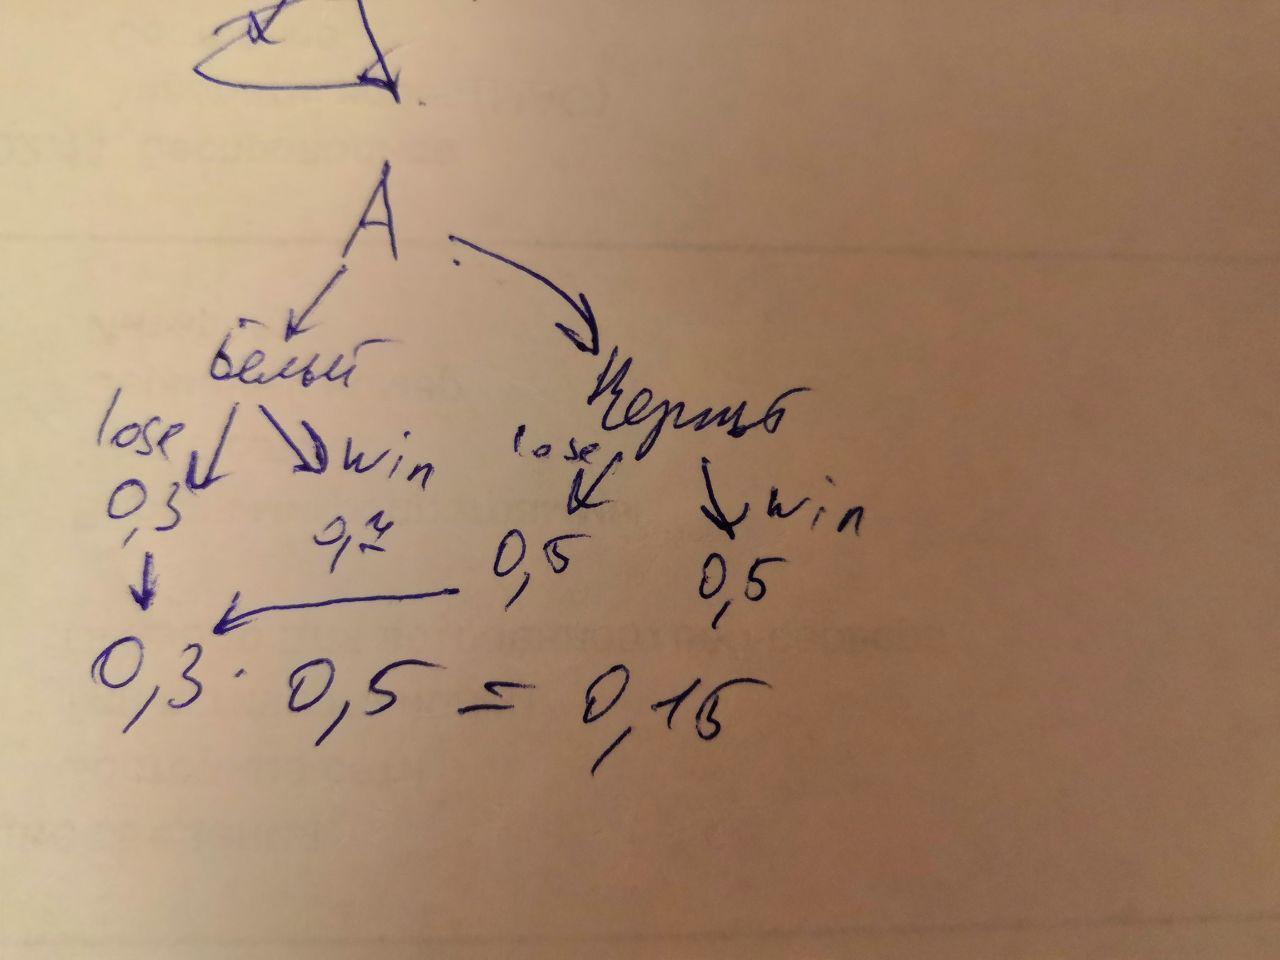 А
Белый
Черный
lose
win
lose
win
0,3
0,7
0,5
0,5
0,3 · 0,5 = 0,15